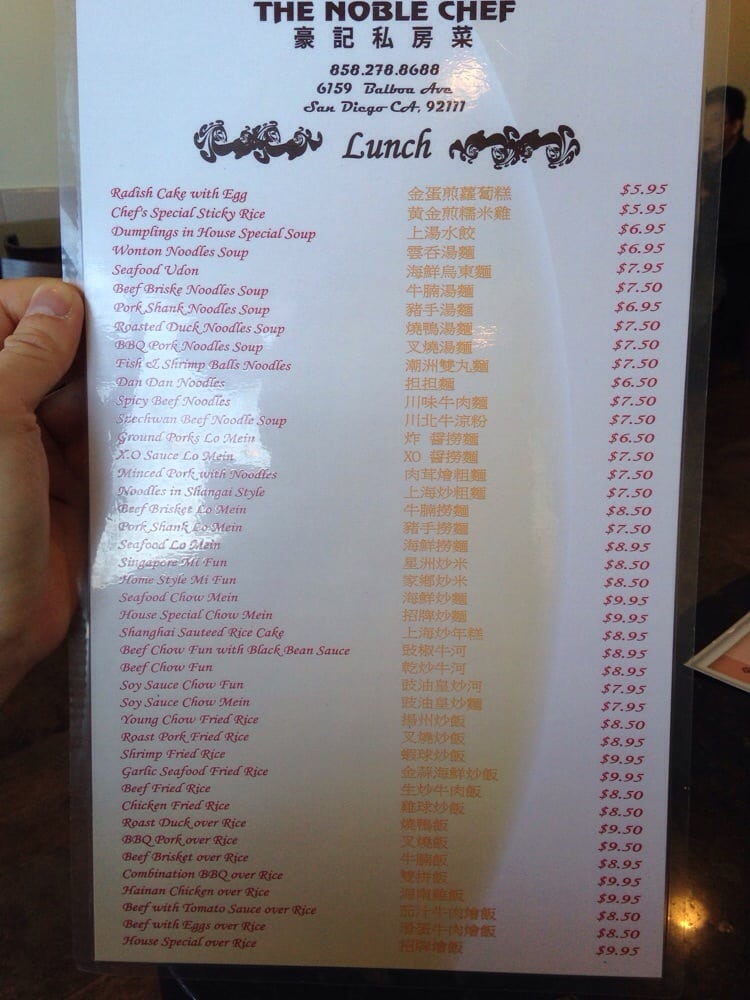 THE NOBLE CHEF
豪記私房菜
858.278.8688
6159 Balboa Ave
San Diego CA, 92111
Lunch
Radish Cake with Egg 金蛋煎蘿蔔糕 $5.95
Chef's Special Sticky Rice 黄金煎糯米雞 $5.95
Dumplings in House Special Soup 上湯水餃 $6.95
Wonton Noodles Soup 雲吞湯麵 $6.95
Seafood Udon 海鮮烏東麵 $7.95
Beef Briske Noodles Soup 牛腩湯麵 $7.50
Pork Shank Noodles Soup 豬手湯麵 $6.95
Roasted Duck Noodles Soup 燒鴨湯麵 $7.50
BBQ Pork Noodles Soup 叉燒湯麵 $7.50
Fish & Shrimp Balls Noodles 潮洲雙丸麵 $7.50
Dan Dan Noodles 担担麵 $6.50
Spicy Beef Noodles 川味牛肉麵 $7.50
Szechwan Beef Noodle Soup 川北牛涼粉 $7.50
Ground Porks Lo Mein 炸 醬撈麵 $6.50
X.O Sauce Lo Mein XO 醬撈麵 $7.50
Minced Pork with Noodles 肉茸燴粗麵 $7.50
Noodles in Shangai Style 上海炒粗麵 $7.50
Beef Brisket Lo Mein 牛腩撈麵 $8.50
Pork Shank Lo Mein 豬手撈麵 $7.50
Seafood Lo Mein 海鮮撈麵 $8.95
Singapore Mi Fun 星洲炒米 $8.50
Home Style Mi Fun 家鄉炒米 $8.50
Seafood Chow Mein 海鮮炒麵 $9.95
House Special Chow Mein 招牌炒麵 $9.95
Shanghai Sauteed Rice Cake 上海炒年糕 $8.95
Beef Chow Fun with Black Bean Sauce 豉椒牛河 $8.95
Beef Chow Fun 乾炒牛河 $8.95
Soy Sauce Chow Fun 豉油皇炒河 $7.95
Soy Sauce Chow Mein 豉油皇炒麵 $7.95
Young Chow Fried Rice 揚州炒飯 $8.50
Roast Pork Fried Rice 叉燒炒飯 $8.95
Shrimp Fried Rice 蝦球炒飯 $9.95
Garlic Seafood Fried Rice 金蒜海鮮炒飯 $9.95
Beef Fried Rice 生炒牛肉飯 $8.50
Chicken Fried Rice 雞球炒飯 $8.50
Roast Duck over Rice 燒鴨飯 $9.50
BBQ Pork over Rice 叉燒飯 $9.50
Beef Brisket over Rice 牛腩飯 $8.95
Combination BBQ over Rice 雙拼飯 $9.95
Hainan Chicken over Rice 海南雞飯 $9.95
Beef with Tomato Sauce over Rice 茄汁牛肉燴飯 $8.50
Beef with Eggs over Rice 滑蛋牛肉燴飯 $8.50
House Special over Rice 招牌燴飯 $9.95